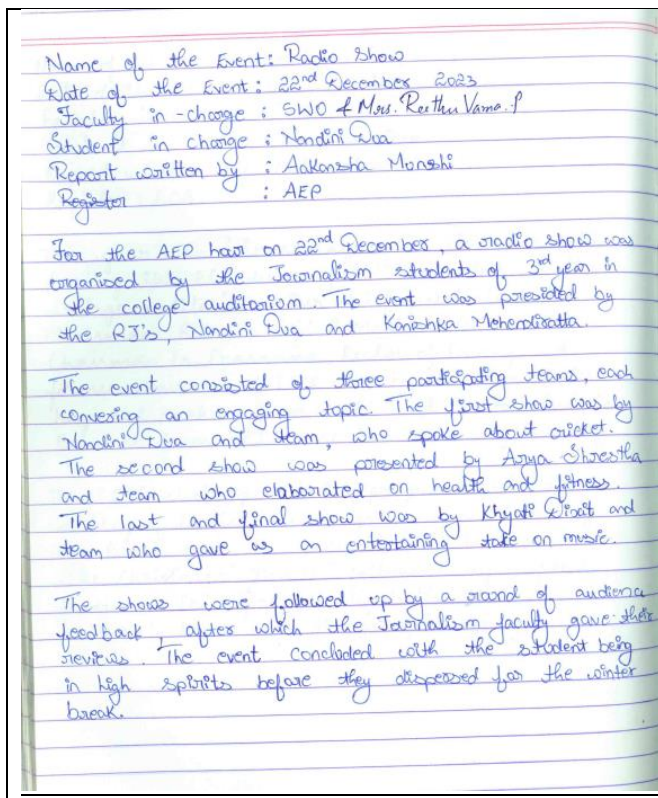 Name of the Event: Radio Show
Date of the Event: 22nd December 2023
Faculty in-charge : SWO & Mrs. Reethu Varna. P
Student in charge : Nandini Dua
Report written by : Aakansha Monshi
Register : AEP
For the AEP hour on 22nd December, a radio show was
organised by the Journalism students of 3rd year in
the college auditorium. The event was presided by
the RJ's, Nandini Dua and Kanishka Mehendiratta.
The event consisted of three participating teams, each
convering an engaging topic. The first show was by
Nandini Dua and team, who spoke about cricket.
The second show was presented by Arya Shrestha
and team who elaborated on health and fitness.
The last and final show was by Khyati Dixit and
team who gave us an entertaining take on music.
The shows were followed up by a round of audience
feedback, after which the Journalism faculty gave their
reviews. The event concluded with the student being
in high spirits before they dispersed for the winter
break.